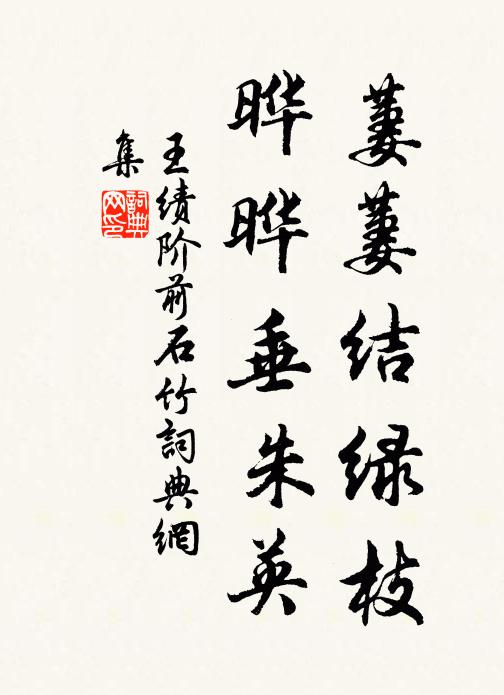 萋萋结绿枝
晔晔垂朱英
王绩阶前石竹詞典網
集
詞典
网印